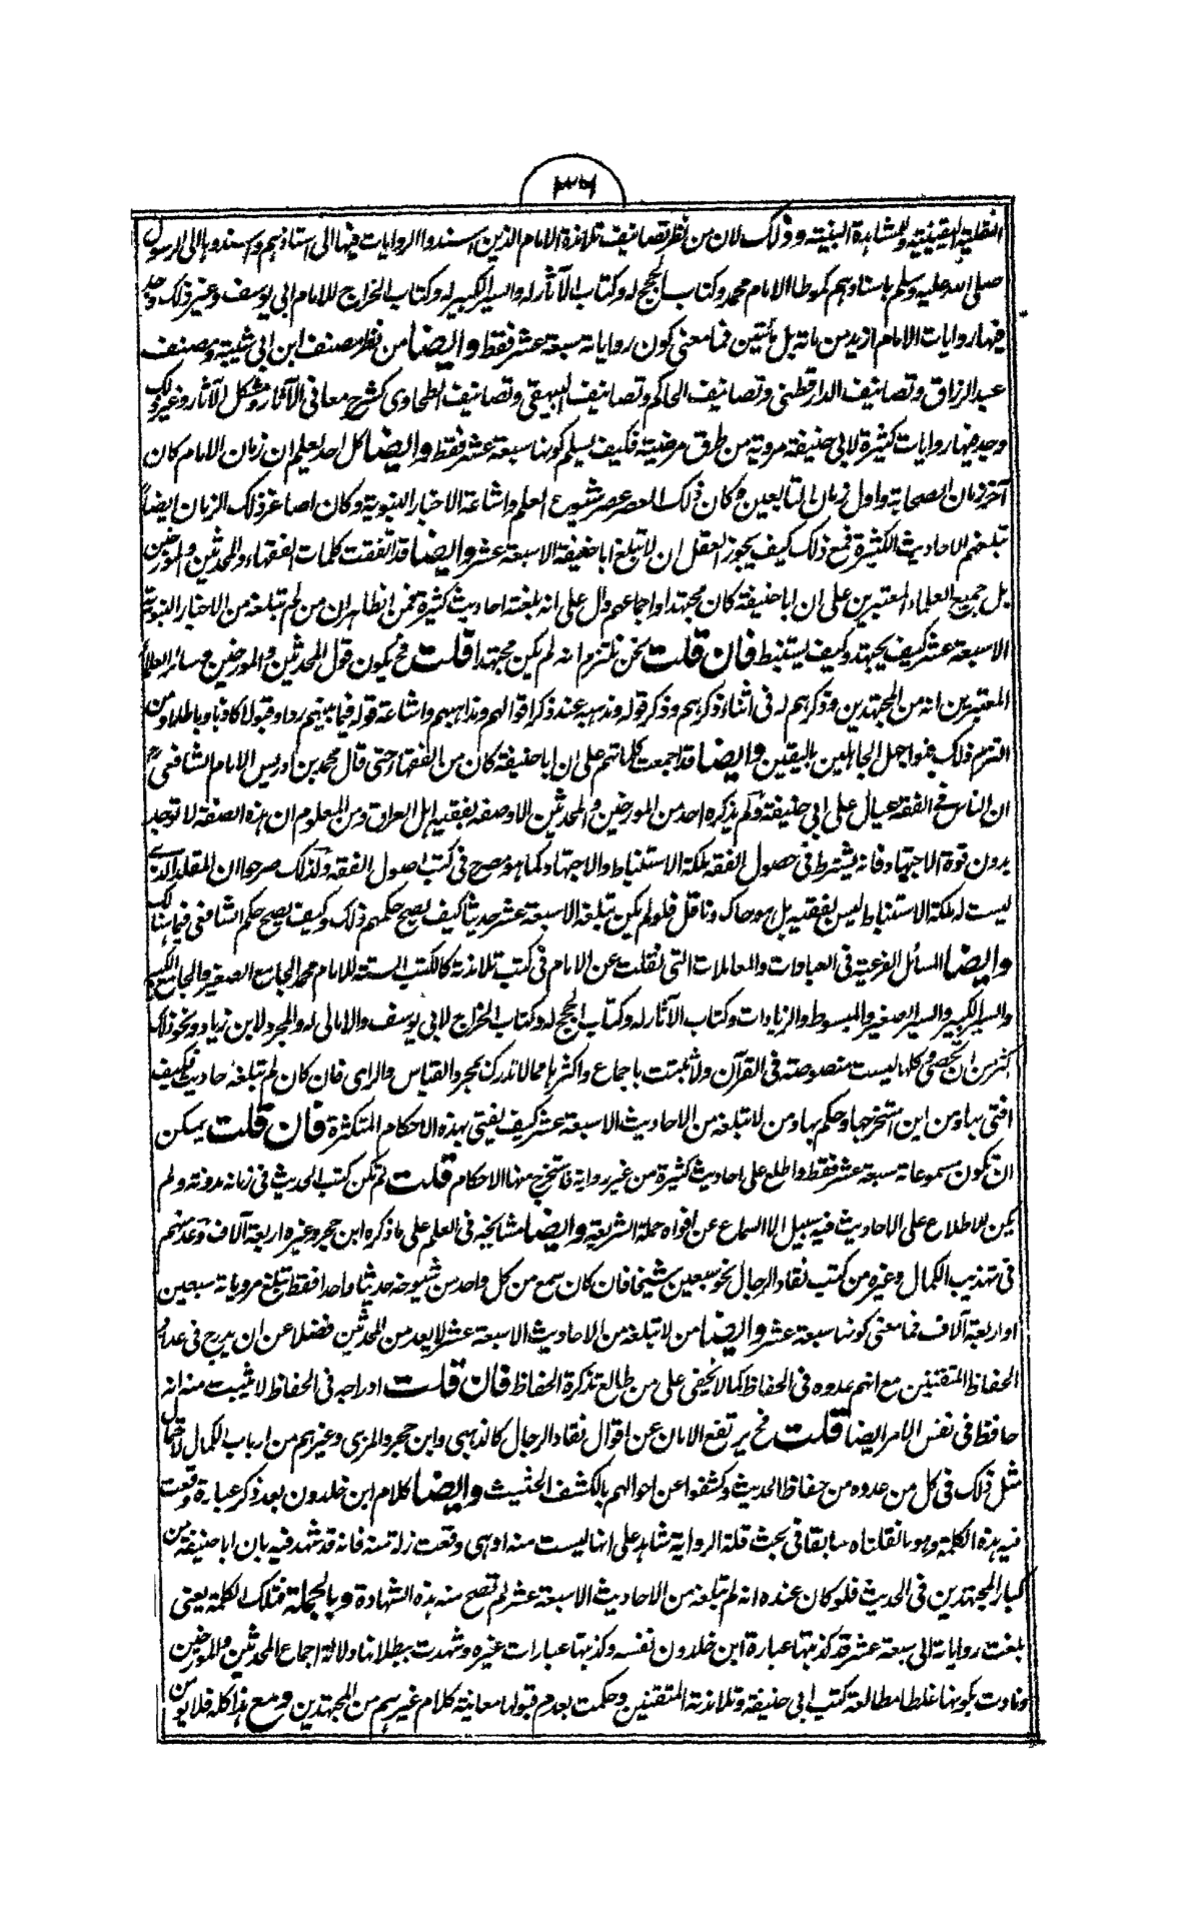 ٣٦
النقلية اليقينية والمشاهدة البينية وذلك لان من نظر تصانيف تلامذة الامام الذين اسندوا الروايات فيها الى استاذهم واسندوها الى الرسول
صلى الله عليه وسلم باسنادهم كموطا الامام محمد وكتاب الحجج له وكتاب الآثار له والسير الكبير له وكتاب الخراج للامام ابي يوسف وغير ذلك وجد
فيها روايات الامام ازيد من مائة بل مائتين فما معنى كون رواياته سبعة عشر فقط وايضا من نظر مصنف ابن ابي شيبة ومصنف
عبد الرزاق وتصانيف الدارقطني وتصانيف الحاكم وتصانيف البيهقي وتصانيف الطحاوي كشرح معاني الآثار ومشكل الآثار وغير ذلك
وجد فيها روايات كثيرة لابي حنيفة مروية من طرق مرضية فكيف يسلم كونها سبعة عشر فقط وايضا كل احد يعلم ان زمان الامام كان
آخر زمان الصحابة واول زمان التابعين وكان ذلك العصر عصر شيوع العلم واشاعة الاخبار النبوية وكان اصاغر ذلك الزمان ايضا
تبلغهم الاحاديث الكثيرة فمع ذلك كيف يجوز العقل ان لا تبلغ ابا حنيفة الا سبعة عشر وايضا قد اتفقت كلمات الفقهاء والمحدثين والمورخين
بل جميع العلماء المعتبرين على ان ابا حنيفة كان مجتهدا واجماعهم دال على انه بلغته احاديث كثيرة فمن الظاهر ان من لم تبلغه من الاخبار النبوية
الا سبعة عشر كيف يجتهد وكيف يستنبط فان قلت نحن نلتزم انه لم يكن مجتهدا قلت فح يكون قول المحدثين والمورخين وسائر العلماء
المعتبرين انه من المجتهدين وذكرهم له في اثناء ذكرهم وذكر قوله ومذهبه عند ذكر اقوالهم ومذاهبهم واشاعة قوله فيما بينهم ردا وقبولا كاذبا وباطلا ومن
التزم ذلك فهو اجهل الجاهلين باليقين وايضا قد اجمعت كلماتهم على ان ابا حنيفة كان من الفقهاء حتى قال محمد بن ادريس الامام الشافعي
ان الناس في الفقه عيال على ابي حنيفة ولم يذكره احد من المورخين والمحدثين الا وصفه بفقيه اهل العراق ومن المعلوم ان هذه الصفة لا توجد
بدون قوة الاجتهاد فانه يشترط في حصول الفقه ملكة الاستنباط والاجتهاد كما هو مصرح في كتب اصول الفقه ولذلك صرحوا ان المقلد الذي
ليست له ملكة الاستنباط ليس بفقيه بل هو حاك وناقل فلو لم يكن تبلغه الا سبعة عشر حديثا كيف يصح حكمهم ذلك وكيف يصح حكم الشافعي فيما هنالك
وايضا المسائل الفرعية في العبادات والمعاملات التي نقلت عن الامام في كتب تلامذته كالكتب الستة للامام محمد الجامع الصغير والجامع الكبير
والسير الكبير والسير الصغير والمبسوط والزيادات وكتاب الآثار له وكتاب الحجج له وكتاب الخراج لابي يوسف والامالي له والمجرد لابن زياد ونحو ذلك
اكثر من ان تحصى وكلها ليست منصوصة في القرآن ولا ثبتت باجماع واكثرها مما لا تدرك بمجرد القياس والراى فان كان لم تبلغه احاديث فكيف
افتى بها ومن اين استخرجها وحكم بها ومن لا تبلغه من الاحاديث الا سبعة عشر كيف يفتي بهذه الاحكام المتكثرة فان قلت يمكن
ان تكون مسموعاته سبعة عشر فقط واطلع على احاديث كثيرة من غير رواية فاستخرج منها الاحكام قلت لم تكن كتب الحديث في زمانه مدونة ولم
يكن للاطلاع على الاحاديث فيه سبيل الا السماع عن افواه حملة الشريعة وايضا مشايخه في العلم على ما ذكره ابن حجر وغيره اربعة آلاف وعد منهم
في تهذيب الكمال وغيره من كتب نقاد الرجال نحو سبعين شيخا فان كان سمع من كل واحد من شيوخه حديثا واحدا فقط تبلغ مروياته سبعين
او اربعة آلاف فما معنى كونها سبعة عشر وايضا من لا تبلغه من الاحاديث الا سبعة عشر لا يعد من المحدثين فضلا عن ان يدرج في عداد
الحفاظ المتقنين مع انهم عدوه في الحفاظ كما لا يخفى على من طالع تذكرة الحفاظ فان قلت ادراجه في الحفاظ لا يثبت منه انه
حافظ في نفس الامر ايضا قلت فح يرتفع الامان عن اقوال نقاد الرجال كالذهبي وابن حجر والمزي وغيرهم من ارباب الكمال لاحتمال
مثل ذلك في كل من عدوه من حفاظ الحديث وكشفوا عن احوالهم بالكشف الحثيث وايضا كلام ابن خلدون بعد ذكر عبارة وقعت
فيه هذه الكلمة وهو ما نقلناه سابقا في بحث قلة الرواية شاهد على انها ليست منه او هي وقعت زلة منه فانه قد شهد فيه بان ابا حنيفة من
كبار المجتهدين في الحديث فلو كان عنده انه لم تبلغه من الاحاديث الا سبعة عشر لم تصح منه هذه الشهادة وبالجملة فتلك الكلمة يعني
بلغت رواياته الى سبعة عشر قد كذبتها عبارة ابن خلدون نفسه وكذبتها عبارات غيره وشهدت ببطلانها دلالة اجماع المحدثين والمورخين
ونادت بكونها غلطا مطالعة كتب ابي حنيفة وتلامذته المتقنين وحكمت بعدم قبولها معاينة كلام غيرهم من المجتهدين ومع هذا كله فلا يؤمن